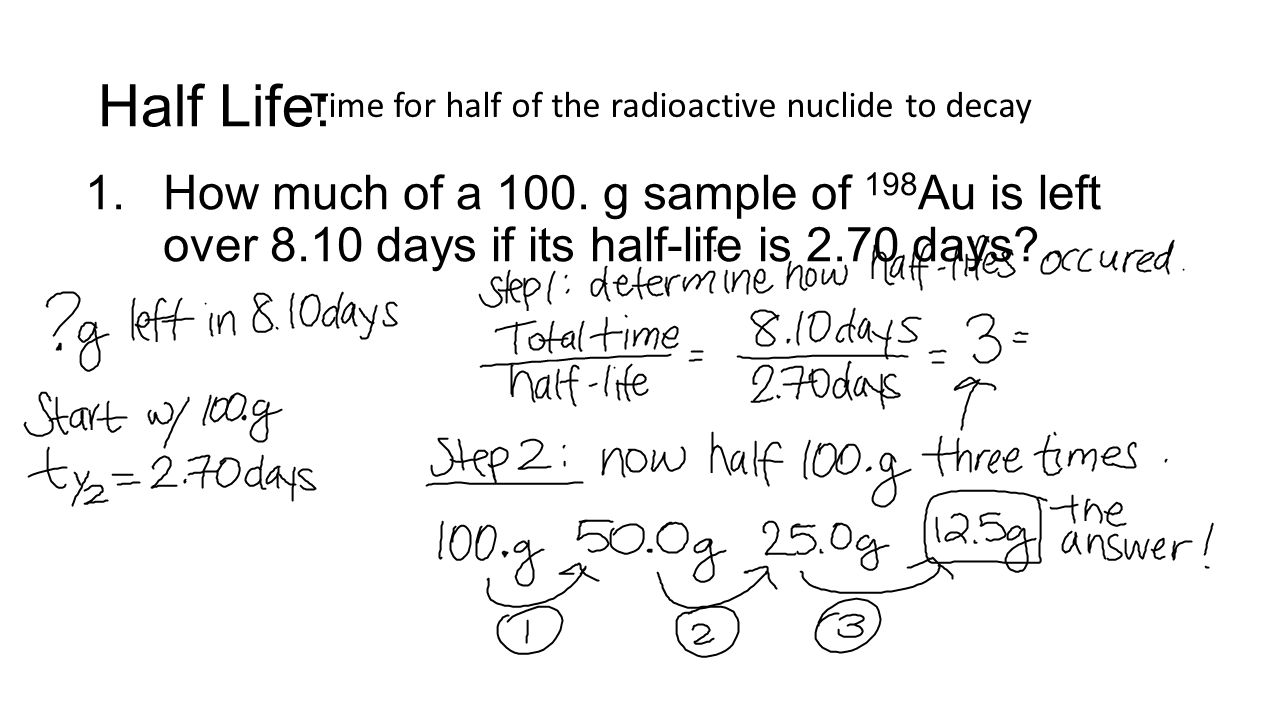 Half Life: Time for half of the radioactive nuclide to decay
1. How much of a 100. g sample of ¹⁹⁸Au is left
over 8.10 days if its half-life is 2.70 days?
Step 1: determine how half-lifes occured.
? g left in 8.10 days
Total time / half-life = 8.10 days / 2.70 days = 3 =
Start w/ 100.g
t 1/2 = 2.70 days
Step 2: now half 100.g three times.
100.g 50.0g 25.0g 12.5g the answer!
1 2 3